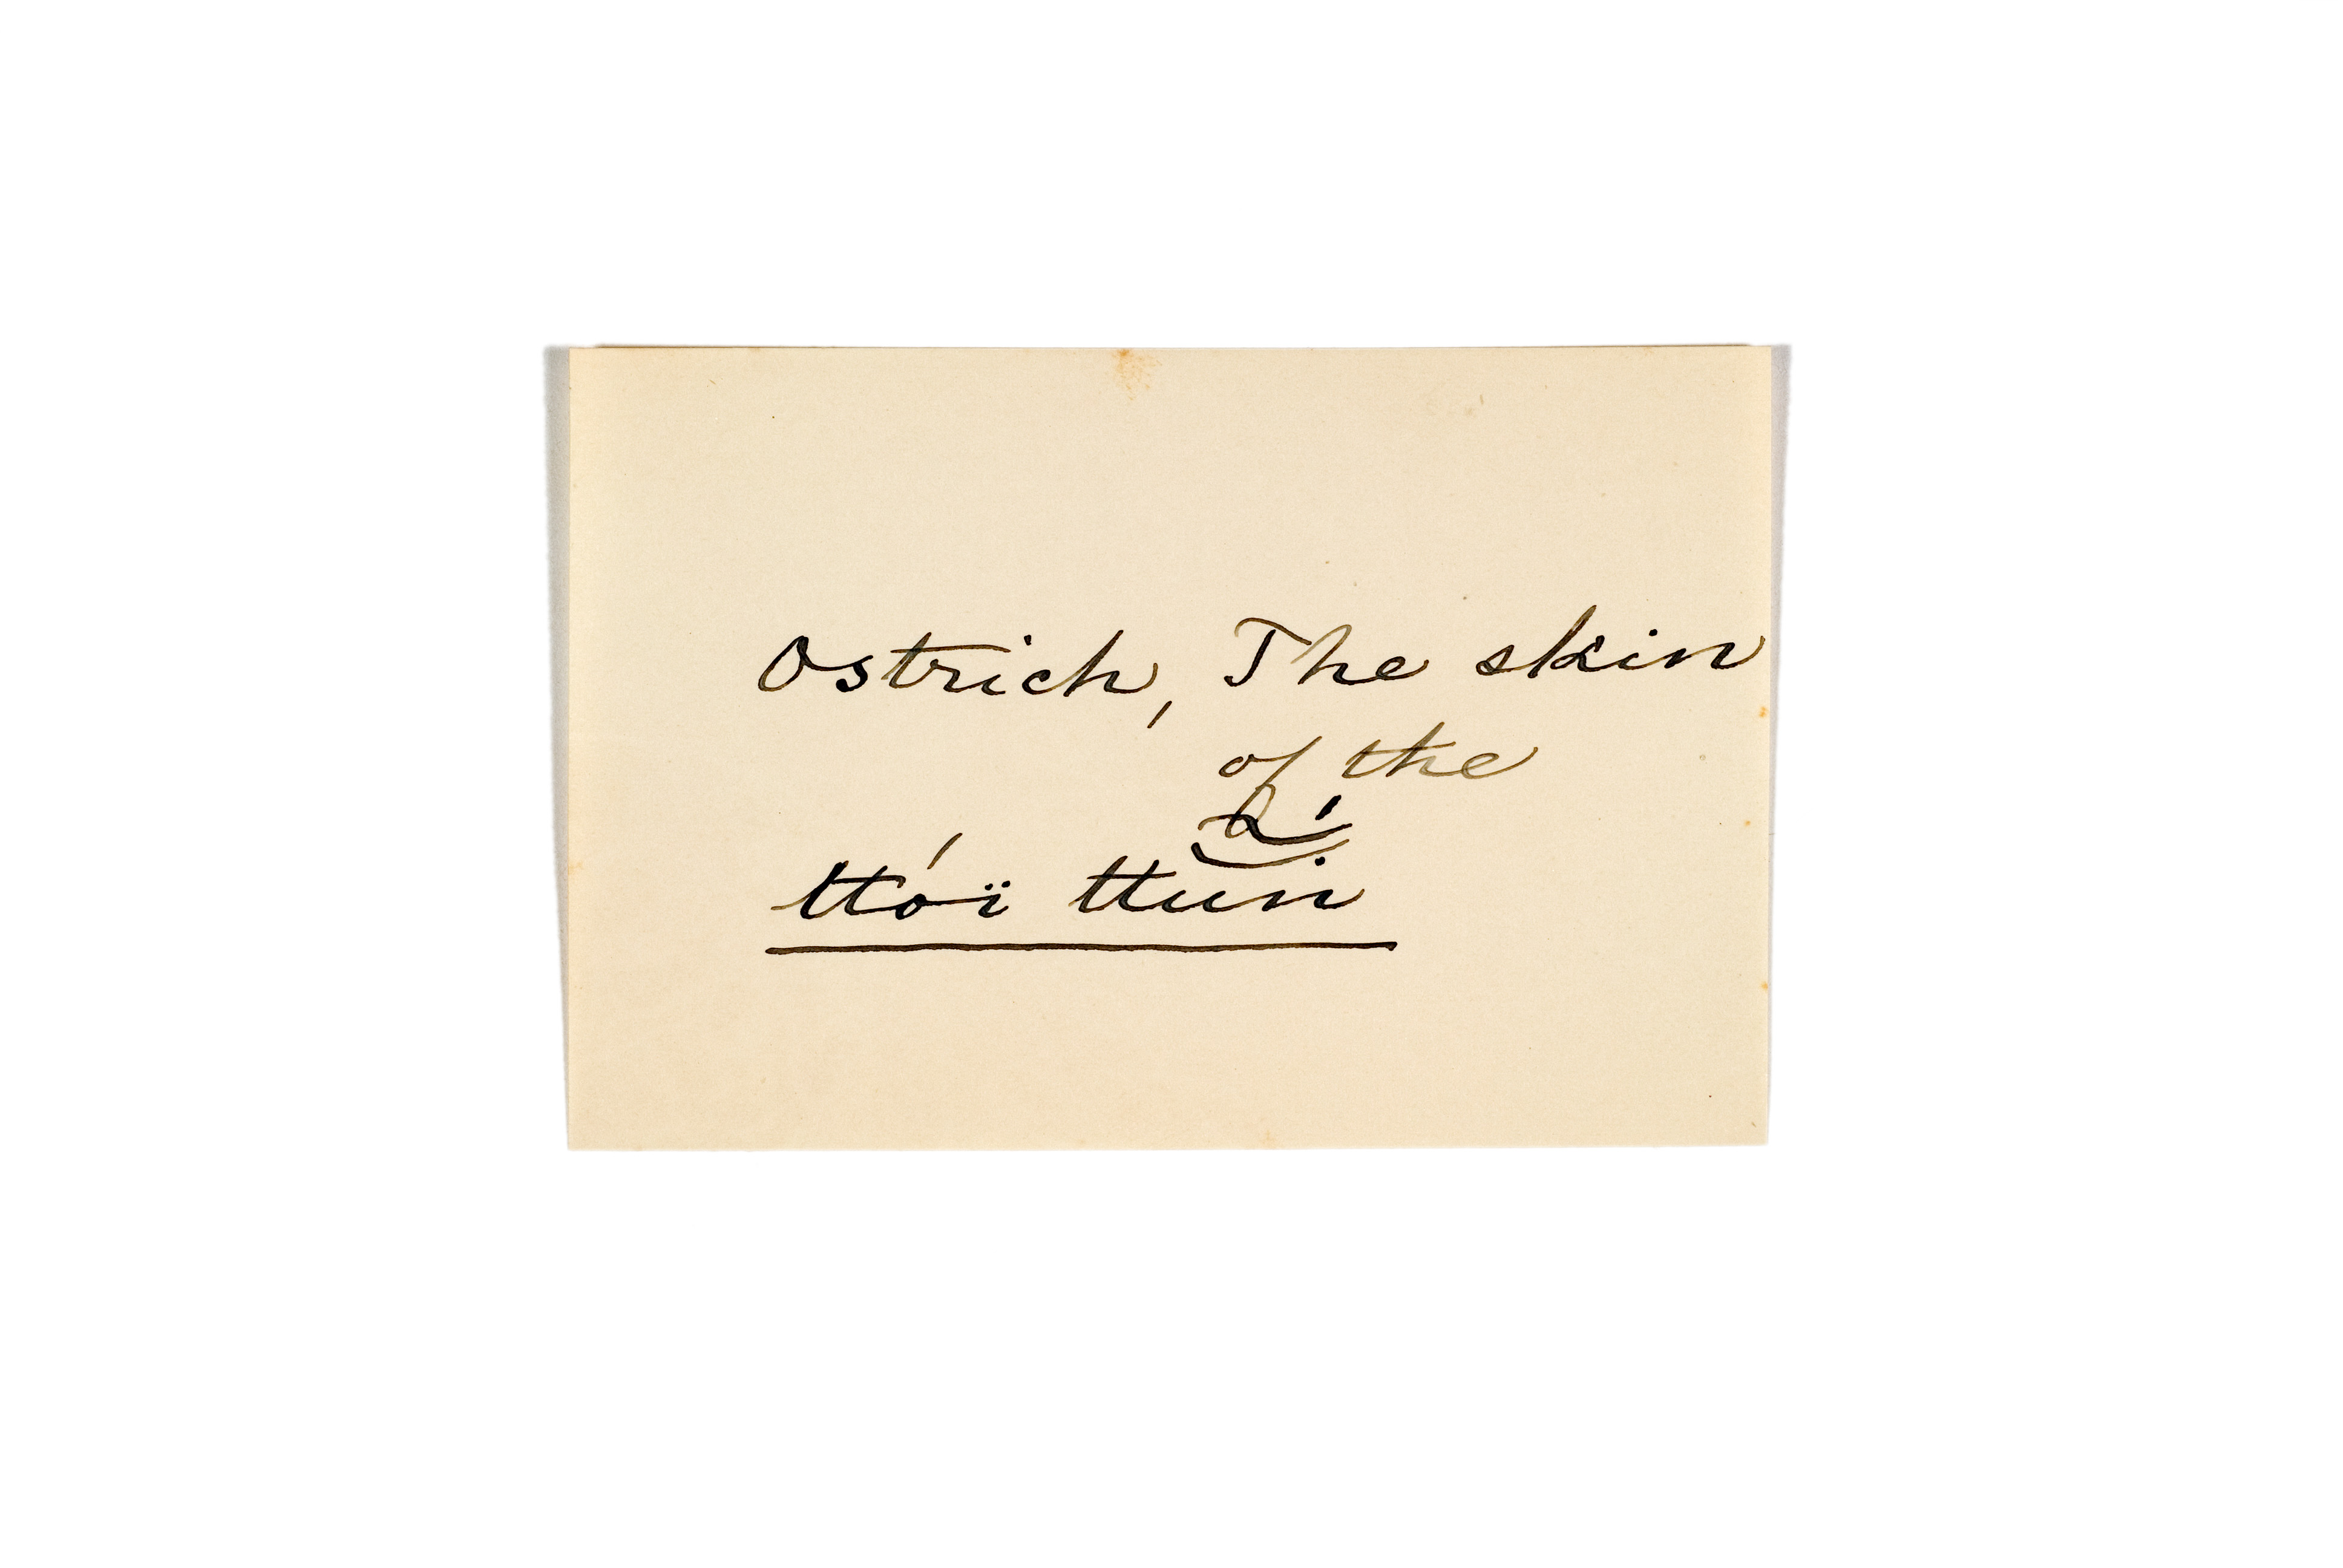 Ostrich, The skin
of the
ttóï ttuin